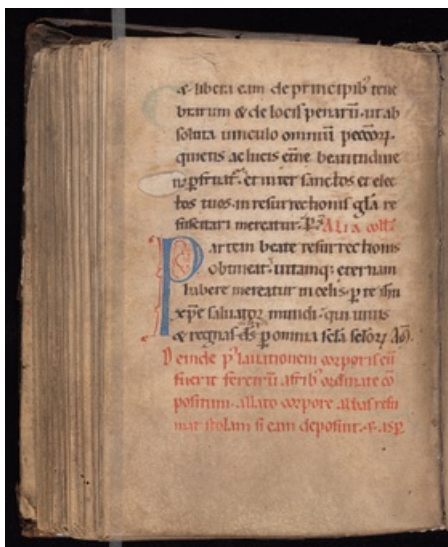 & libera eam de principib; tene
brarum & de locis penarū. ut ab
soluta uinculo omniū peccōrꝝ.
quietis ac lucis etñe beatitudine
ꝑfruat᷑. et inter sanctos et elec
tos tuos in resurrectionis gl̄a re
suscitari mereatur. ꝑ. Alia coll.
Partem beate resurrectionis
obtineat. uitamq; eternam
habere mereatur in celis. ꝑ te ihu
xp̄e saluator mundi. qui uiuis
& regnas d̄s ꝑ omnia sc̄la sc̄lorꝝ am̄.
Deinde lauationem corporis cū
fuerit feretrū a fr̄ib; ordinate cō
positum. allato corpore albas resu
mat stolam si eam deposint.